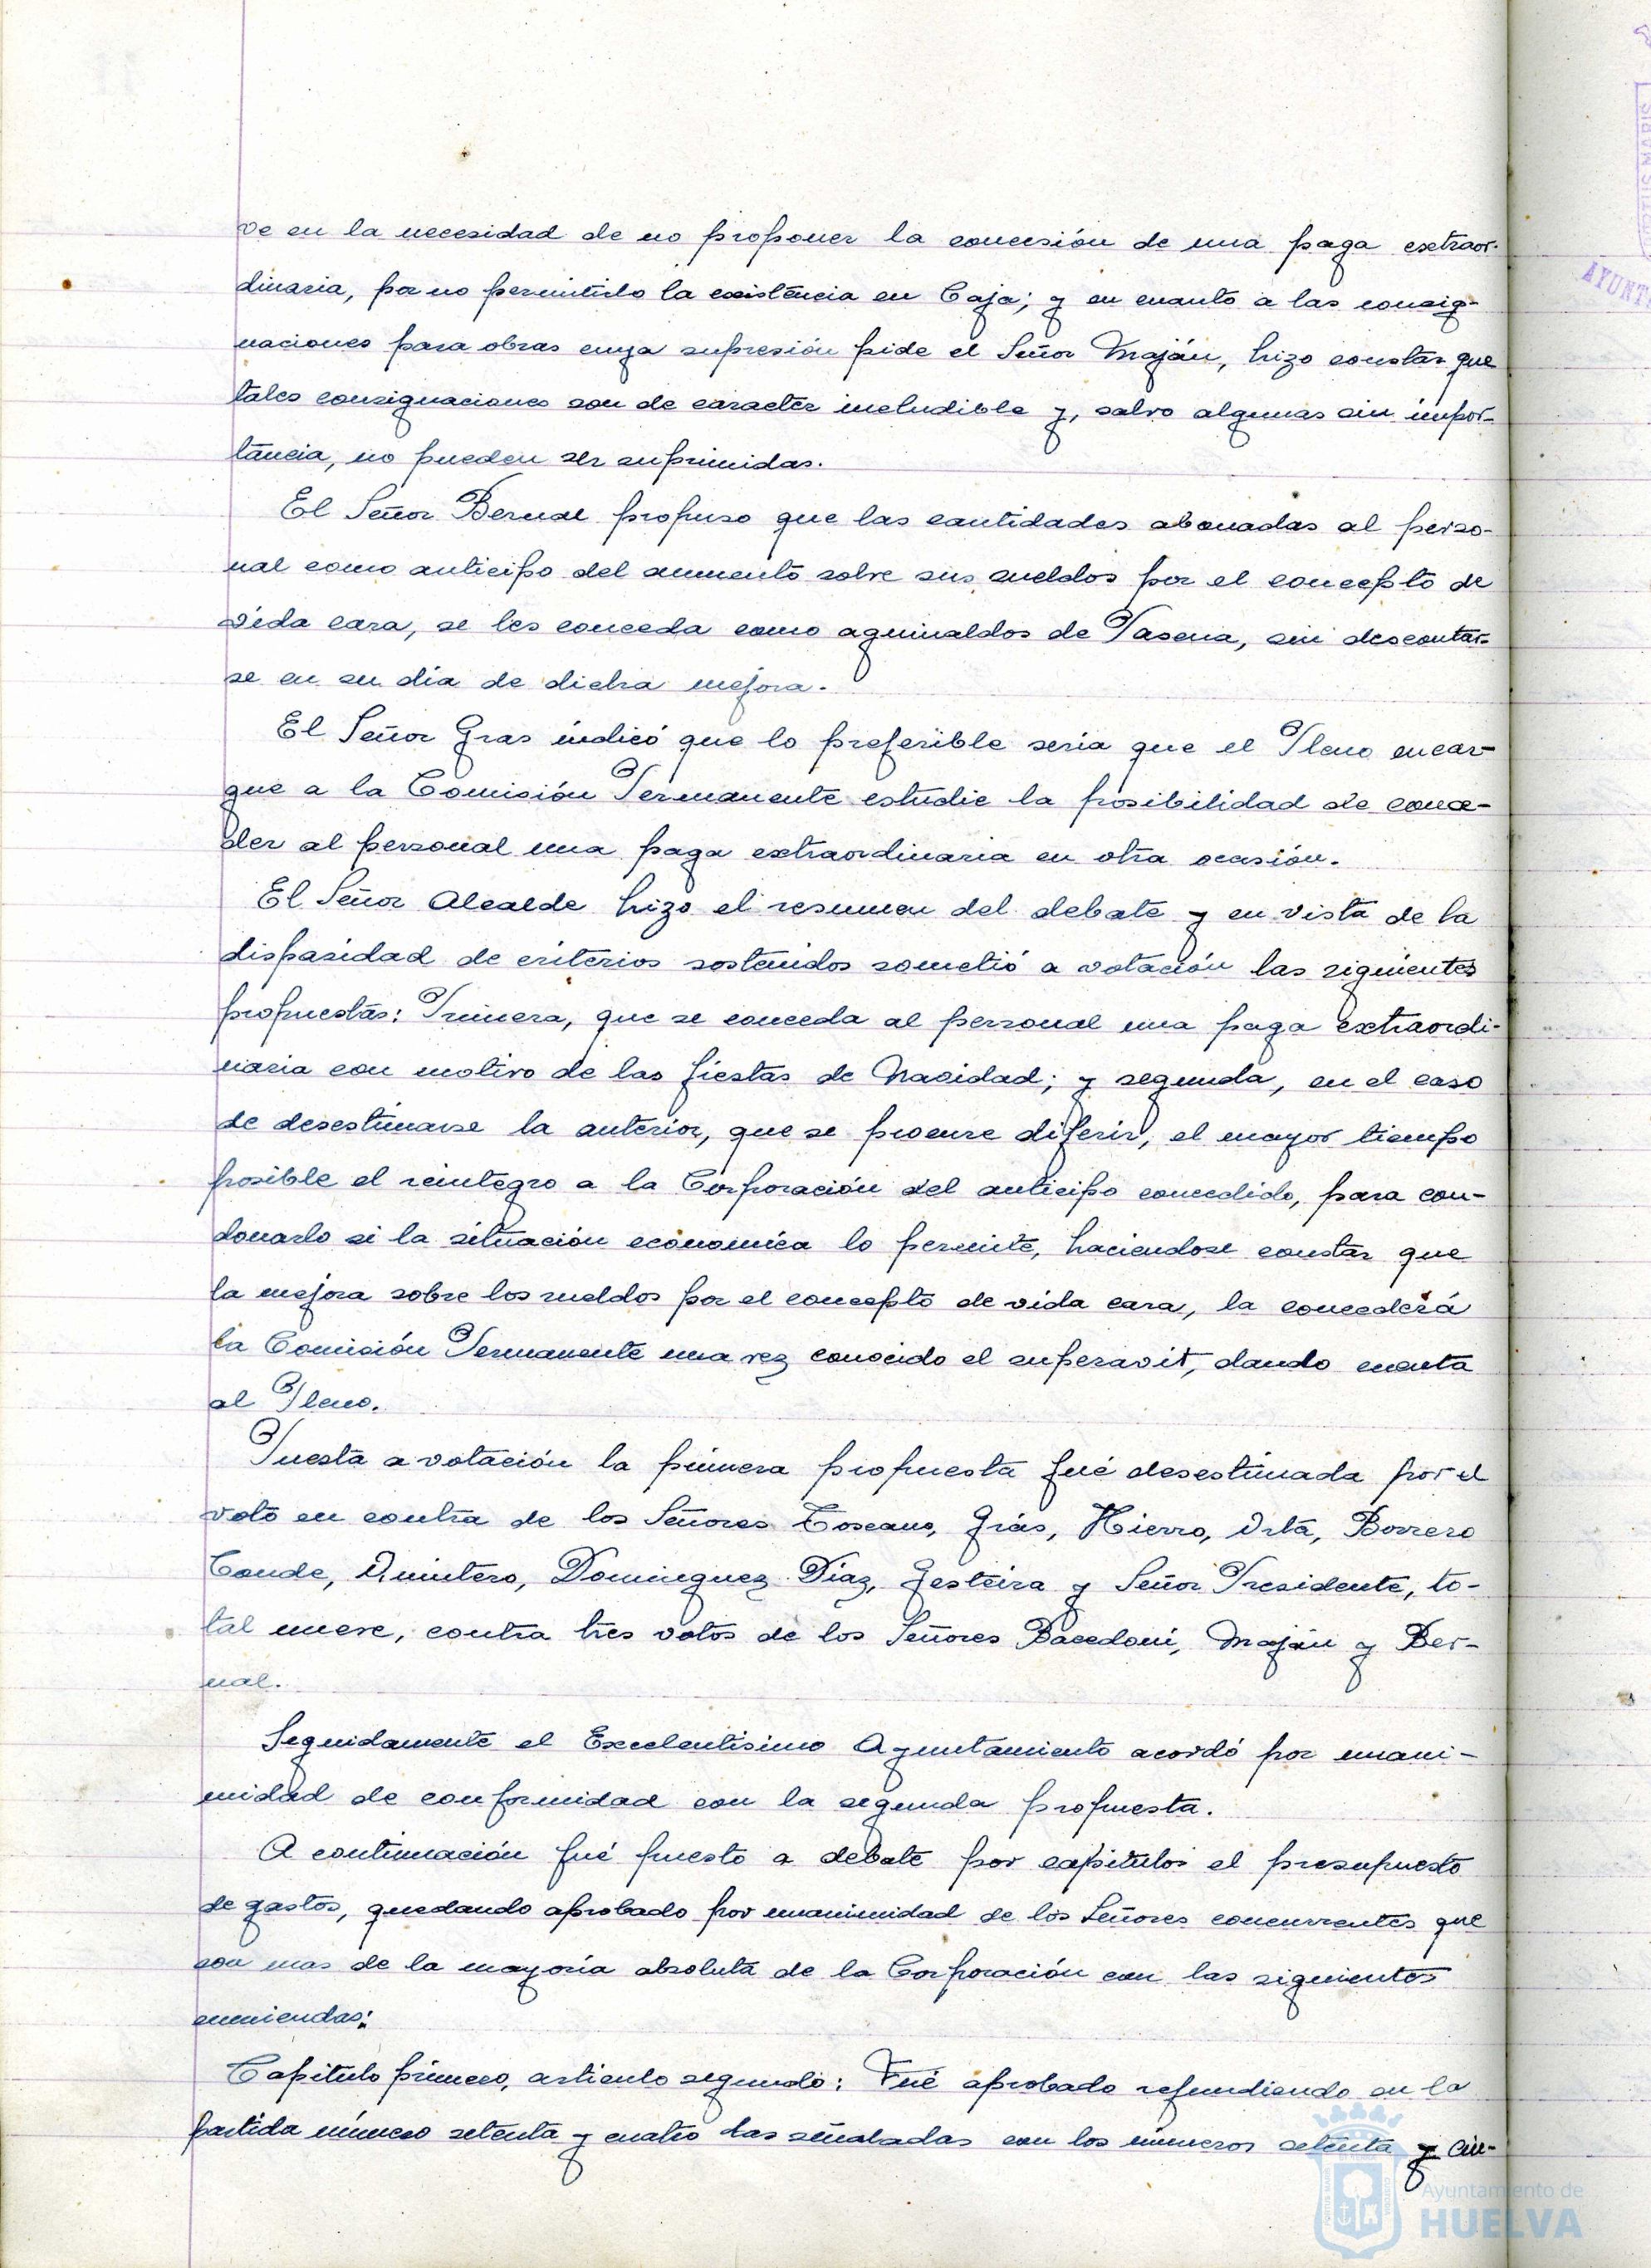 ve en la necesidad de no proponer la concesión de una paga extraor-
dinaria, por no permitirlo la existencia en Caja; y en cuanto a las consig-
naciones para obras cuya supresión pide el Señor Maján, hizo constar que
tales consignaciones son de caracter ineludible y, salvo algunas sin impor-
tancia, no pueden ser suprimidas.
El Señor Bernal propuso que las cantidades abonadas al perso-
nal como anticipo del aumento sobre sus sueldos por el concepto de
vida cara, se les conceda como aguinaldos de Pascua, sin descontar-
se en su día de dicha mejora.
El Señor Gras indicó que lo preferible seria que el Pleno encar-
gue a la Comisión Permanente estudie la posibilidad de conce-
der al personal una paga extraordinaria en otra ocasión.
El Señor Alcalde hizo el resumen del debate y en vista de la
disparidad de criterios sostenidos sometió a votación las siguientes
propuestas: Primera, que se conceda al personal una paga extraordi-
naria con motivo de las fiestas de Navidad; y segunda, en el caso
de desestimarse la anterior, que se procure diferir, el mayor tiempo
posible el reintegro a la Corporación del anticipo concedido, para con-
donarlo si la situación economica lo permite, haciendose constar que
la mejora sobre los sueldos por el concepto de vida cara, la concederá
la Comisión Permanente una vez conocido el superavit, dando cuenta
al Pleno.
Puesta a votación la primera propuesta fué desestimada por el
voto en contra de los Señores Toscano, Grás, Hierro, Orta, Borrero
Conde, Quintero, Dominguez Díaz, Gesteira y Señor Presidente, to-
tal nueve, contra tres votos de los Señores Bacedoni, Maján y Ber-
nal.
Seguidamente el Excelentisimo Ayuntamiento acordó por unani-
midad de conformidad con la segunda propuesta.
A continuación fué puesto a debate por capitulos el presupuesto
de gastos, quedando aprobado por unanimidad de los Señores concurrentes que
son mas de la mayoría absoluta de la Corporación con las siguientes
enmiendas:
Capitulo primero, articulo segundo: Fué aprobado refundiendo en la
partida número setenta y cuatro las señaladas con los números setenta y cin-
AYUNT
Ayuntamiento de
HUELVA